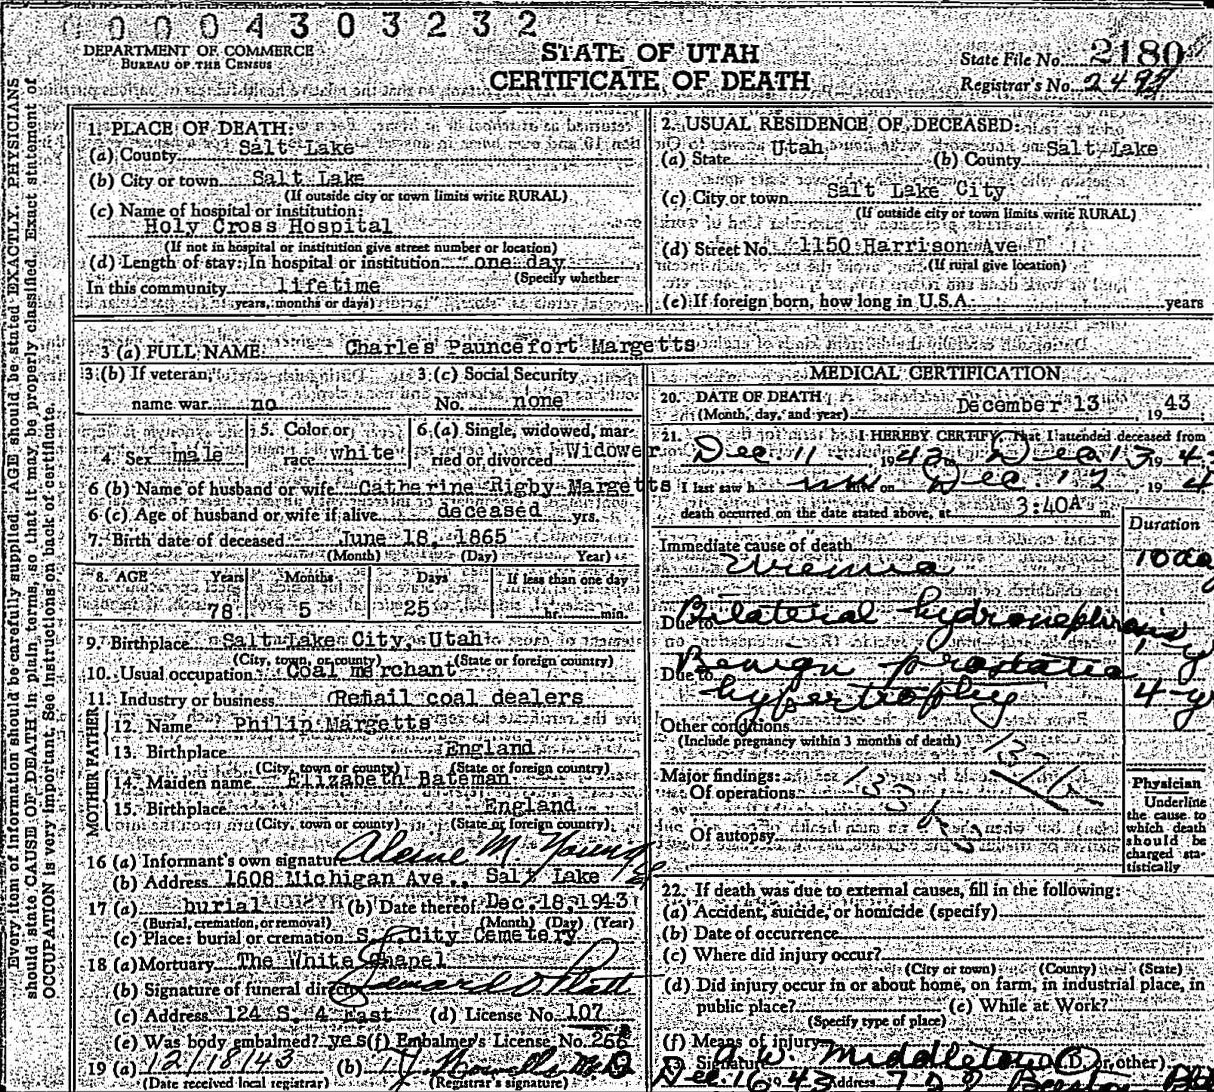 0004303232
DEPARTMENT OF COMMERCE
BUREAU OF THE CENSUS
STATE OF UTAH
CERTIFICATE OF DEATH
State File No. 2180
Registrar's No.
Every item of information should be carefully supplied. AGE should be stated EXACTLY. PHYSICIANS
should state CAUSE OF DEATH in plain terms, so that it may be properly classified. Exact statement of
OCCUPATION is very important. See instructions on back of certificate.
1. PLACE OF DEATH:
(a) County Salt Lake
(b) City or town Salt Lake
(If outside city or town limits write RURAL)
(c) Name of hospital or institution:
Holy Cross Hospital
(If not in hospital or institution give street number or location)
(d) Length of stay: In hospital or institution one day
(Specify whether
In this community lifetime
years, months or days)
2. USUAL RESIDENCE OF DECEASED:
(a) State Utah (b) County Salt Lake
(c) City or town Salt Lake City
(If outside city or town limits write RURAL)
(d) Street No. 1150 Harrison Ave
(If rural give location)
(e) If foreign born, how long in U.S.A. years
3 (a) FULL NAME Charles Pauncefort Margetts
3 (b) If veteran, 3 (c) Social Security
name war no No. none
4. Sex male 5. Color or race white 6 (a) Single, widowed, married or divorced Widower
6 (b) Name of husband or wife Catherine Rigby Margetts
6 (c) Age of husband or wife if alive deceased yrs.
7. Birth date of deceased June 18, 1865
(Month) (Day) Year)
8. AGE Years Months Days If less than one day
78 5 25 hr. min.
9. Birthplace Salt Lake City, Utah
(City, town, or county) (State or foreign country)
10. Usual occupation Coal merchant
11. Industry or business Retail coal dealers
FATHER
12. Name Philip Margetts
13. Birthplace England
(City, town or county) (State or foreign country)
MOTHER
14. Maiden name Elizabeth Bateman
15. Birthplace England
(City, town or county) (State or foreign country)
16 (a) Informant's own signature M. Young
(b) Address 1608 Michigan Ave., Salt Lake
17 (a) burial (b) Date thereof Dec. 18, 1943
(Burial, cremation, or removal) (Month) (Day) (Year)
(c) Place: burial or cremation S. L. City Cemetery
18 (a) Mortuary The White Chapel
(b) Signature of funeral director
(c) Address 124 S. 4 East (d) License No. 107
(e) Was body embalmed? yes (f) Embalmer's License No.
19 (a) 12/18/43 (b)
(Date received local registrar) (Registrar's signature)
MEDICAL CERTIFICATION
20. DATE OF DEATH
(Month, day, and year) December 13, 1943
21. I HEREBY CERTIFY, That I attended deceased from
Dec. 11 1943 to Dec 13 19 4
I last saw h im alive on Dec. 19 4
death occurred on the date stated above, at 3:40A m.
Duration
Immediate cause of death
Uremia 10 da
Due to Bilateral hydronephrosis
Due to Benign prostatic
hypertrophy 4-y
Other conditions
(Include pregnancy within 3 months of death)
Major findings:
Of operations
Of autopsy
Physician
Underline
the cause to
which death
should be
charged sta-
tistically
22. If death was due to external causes, fill in the following:
(a) Accident, suicide, or homicide (specify)
(b) Date of occurrence
(c) Where did injury occur?
(City or town) (County) (State)
(d) Did injury occur in or about home, on farm, in industrial place, in
public place? (e) While at Work?
(Specify type of place)
(f) Means of injury
Signature A. W. Middleton (M.D. or other)
Dec. 16 1943 Address